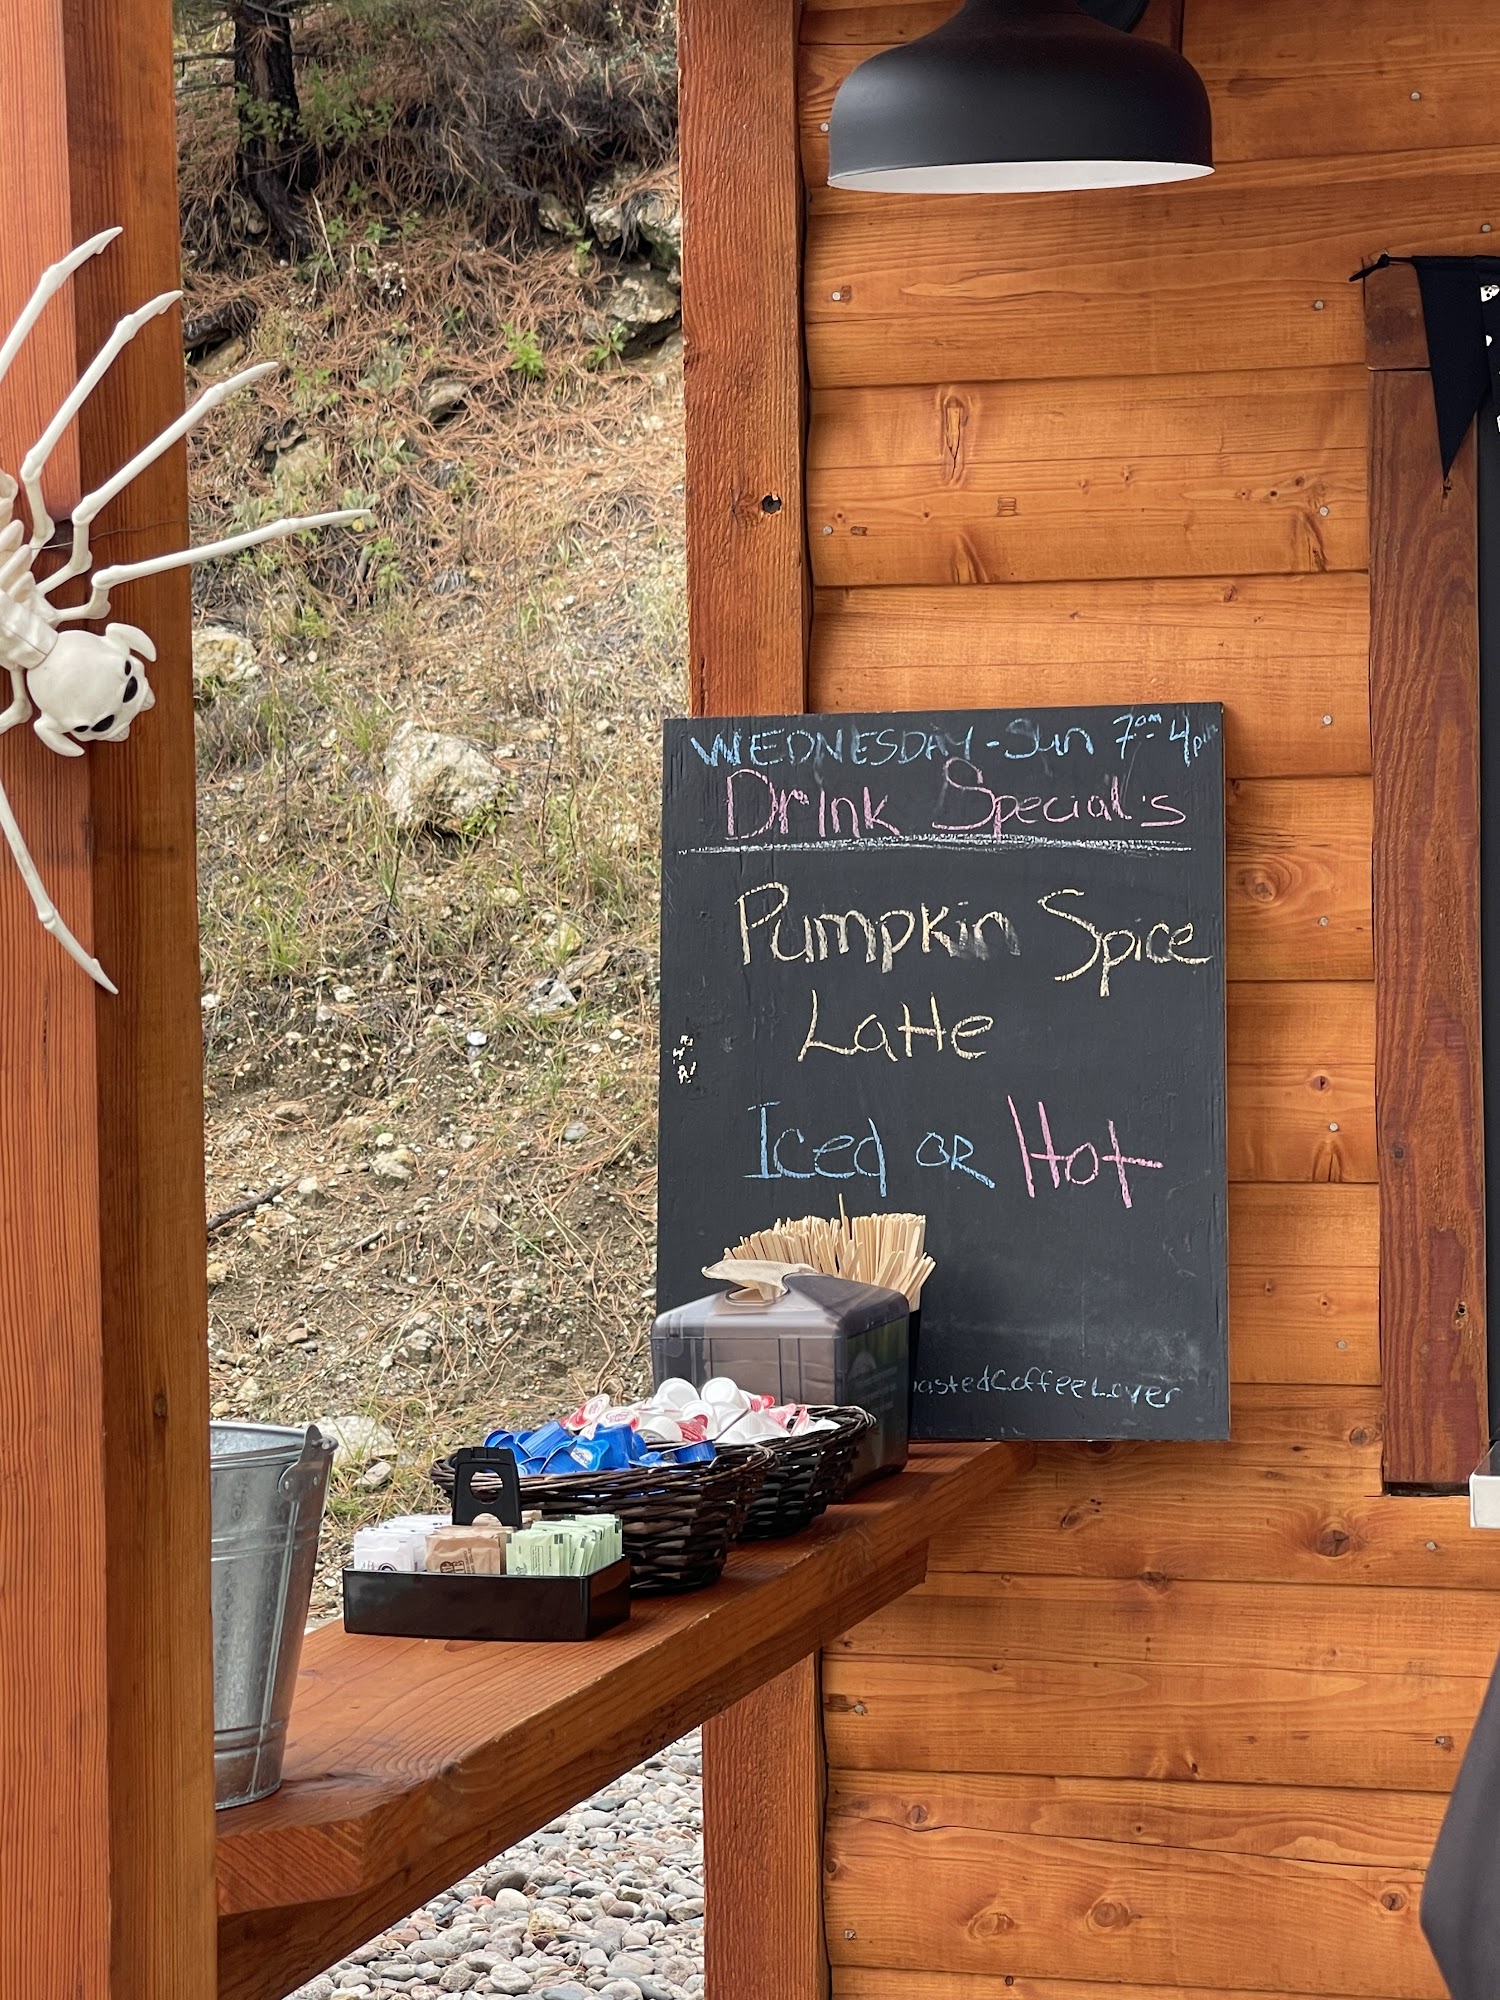 WEDNESDAY - Sun 7am - 4pm
Drink Special's
Pumpkin Spice
Latte
Iced OR Hot
astedCoffeeLover